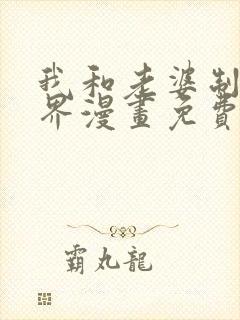 我和老婆制
界漫畫免費
霸丸龍